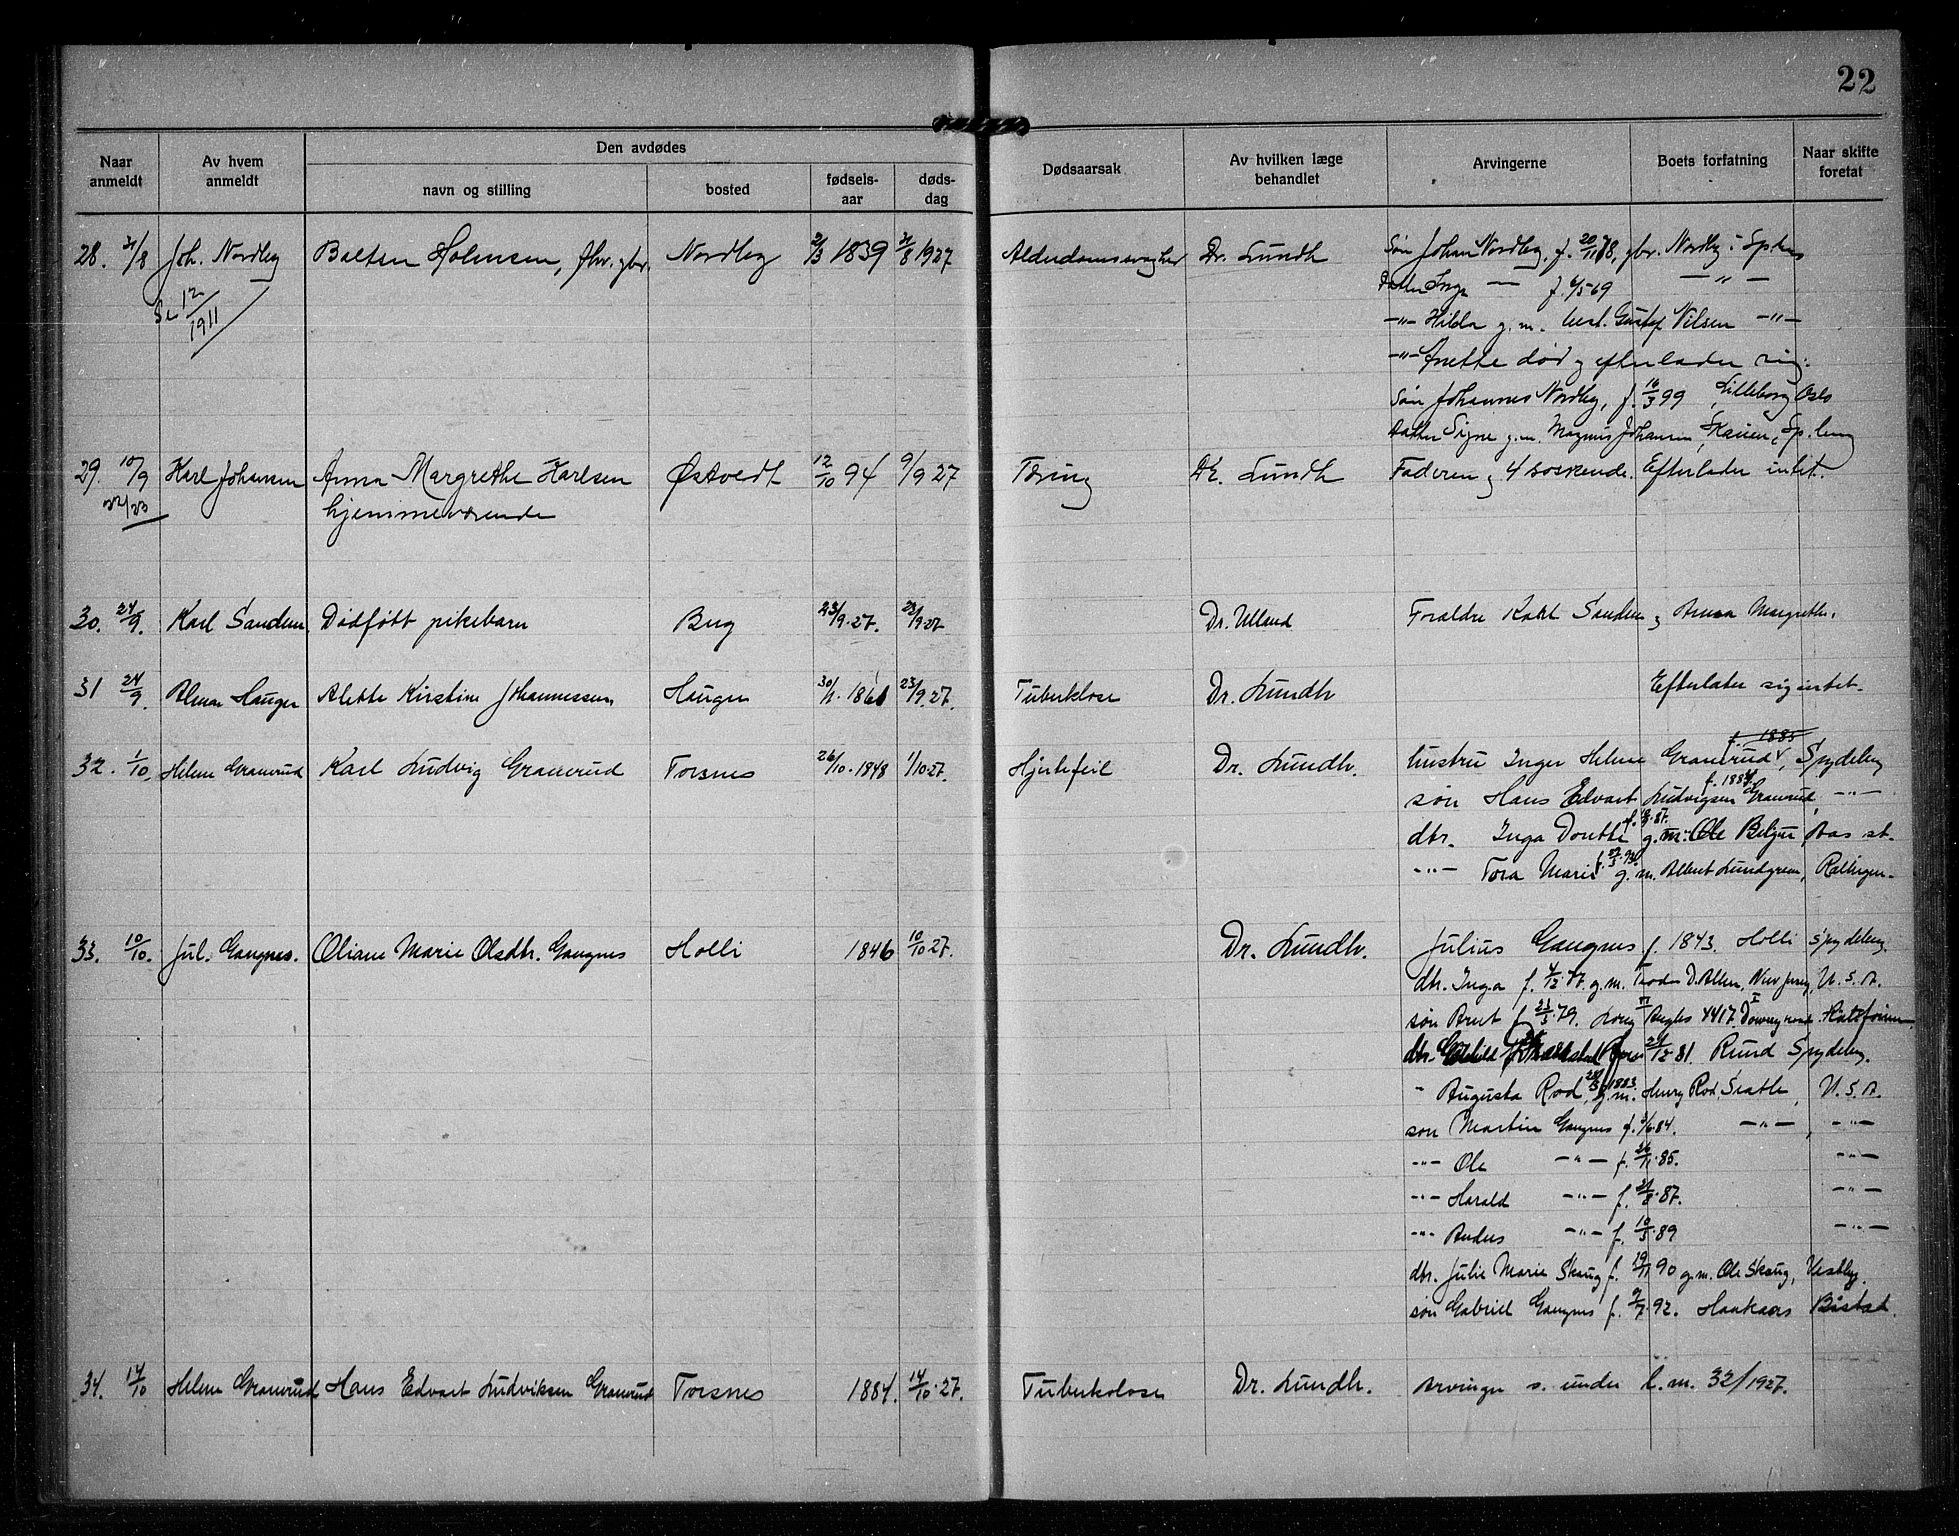 22
Naar anmeldt
Av hvem anmeldt
Den avdødes
navn og stilling
bosted
fødsels-aar
døds-dag
Dødsaarsak
Av hvilken læge behandlet
Arvingerne
Boets forfatning
Naar skifte foretat
28. 31/8 Joh. Nordby Boltsen Holmsen, fhv. gbr. Nordby 2/3 1839 31/8 1927 Alderdomssvaghet Dr. Lundh Søn Johan Nordby, f. 20/11 78, gbr. Nordby i Spbrg
Datter Inga — f. 6/5 69 — " —
12/1911
—"— Hilda g.m. Gustaf Nilsen —"—
—"— Anette død og efterlader sig:
Søn Johannes Nordby, f. 16/3 99 Lilleborg Oslo
Datter Signe g.m. Magnus Johansen, Skauen, Sp.berg
29. 10/9 Karl Johansen Anna Margrethe Karlsen Østvedt 12/10 94 9/9 27 Tæring Dr. Lundh Faderen og 4 søskende. Efterlader intet.
22/23 hjemmeværende
30. 24/9. Karl Sanden. Dødføtt pikebarn Bug 23/9.27. 23/9.27 Dr. Ulland Foraldre Karl Sanden og Anna Margrethe.
31 24/9. Hauger Alette Kirstine Johannessen, Haugen 30/1. 1861 23/9.27. Tuberklose Dr. Lundh Efterlater sig intet.
32. 1/10. Helene Granerud Karl Ludvig Granerud Torsnes 26/10. 1848 1/10.27. Hjertefeil Dr. Lundh. hustru Inger Helene Granerud f. 1885, Spydeberg
søn Hans Edvart Ludvigsen Granerud f. 1884 —"—
dtr. Inga Dorthe g.m. Ole
—"— Tora Marie g.m. Albert Lundgreen,
33. 10/10. Jul. Gangnes. Oliane Marie Olsdtr. Gangnes Holli 1846 10/10.27. Dr. Lundh. Julius Gangnes f. 1843. Holli Spydeberg.
dtr. Inga f. 4/12.77. g.m. D. Allen, New Jersey, U.S.A.
søn f. 23/3 79. Long 4417 Downey road
dtr. 81. Ruud Spydeberg.
" Augusta Rod, 1883 g.m. Henry Rod, Seatle, U.S.A.
søn Martin Gangnes f. 2/6.84. —"—, —"—
—"— Ole —"— f. 26/11.85. —"—
—"— Harald —"— f. 21/8.87. —"—
—"— Anders —"— f. 10/3.89 —"—
dtr. Julie Marie Skaug f. 19/11 90 g.m. Ole Skaug, Vestby.
søn Gabriel Gangnes f. 9/7.92. Haakaas Båstad.
34. 14/10 Helene Granerud Hans Edvart Ludviksen Granerud Torsnes 1884. 14/10.27. Tuberkolose Dr. Lundh. Arvinger s. under l.m. 32/1927.